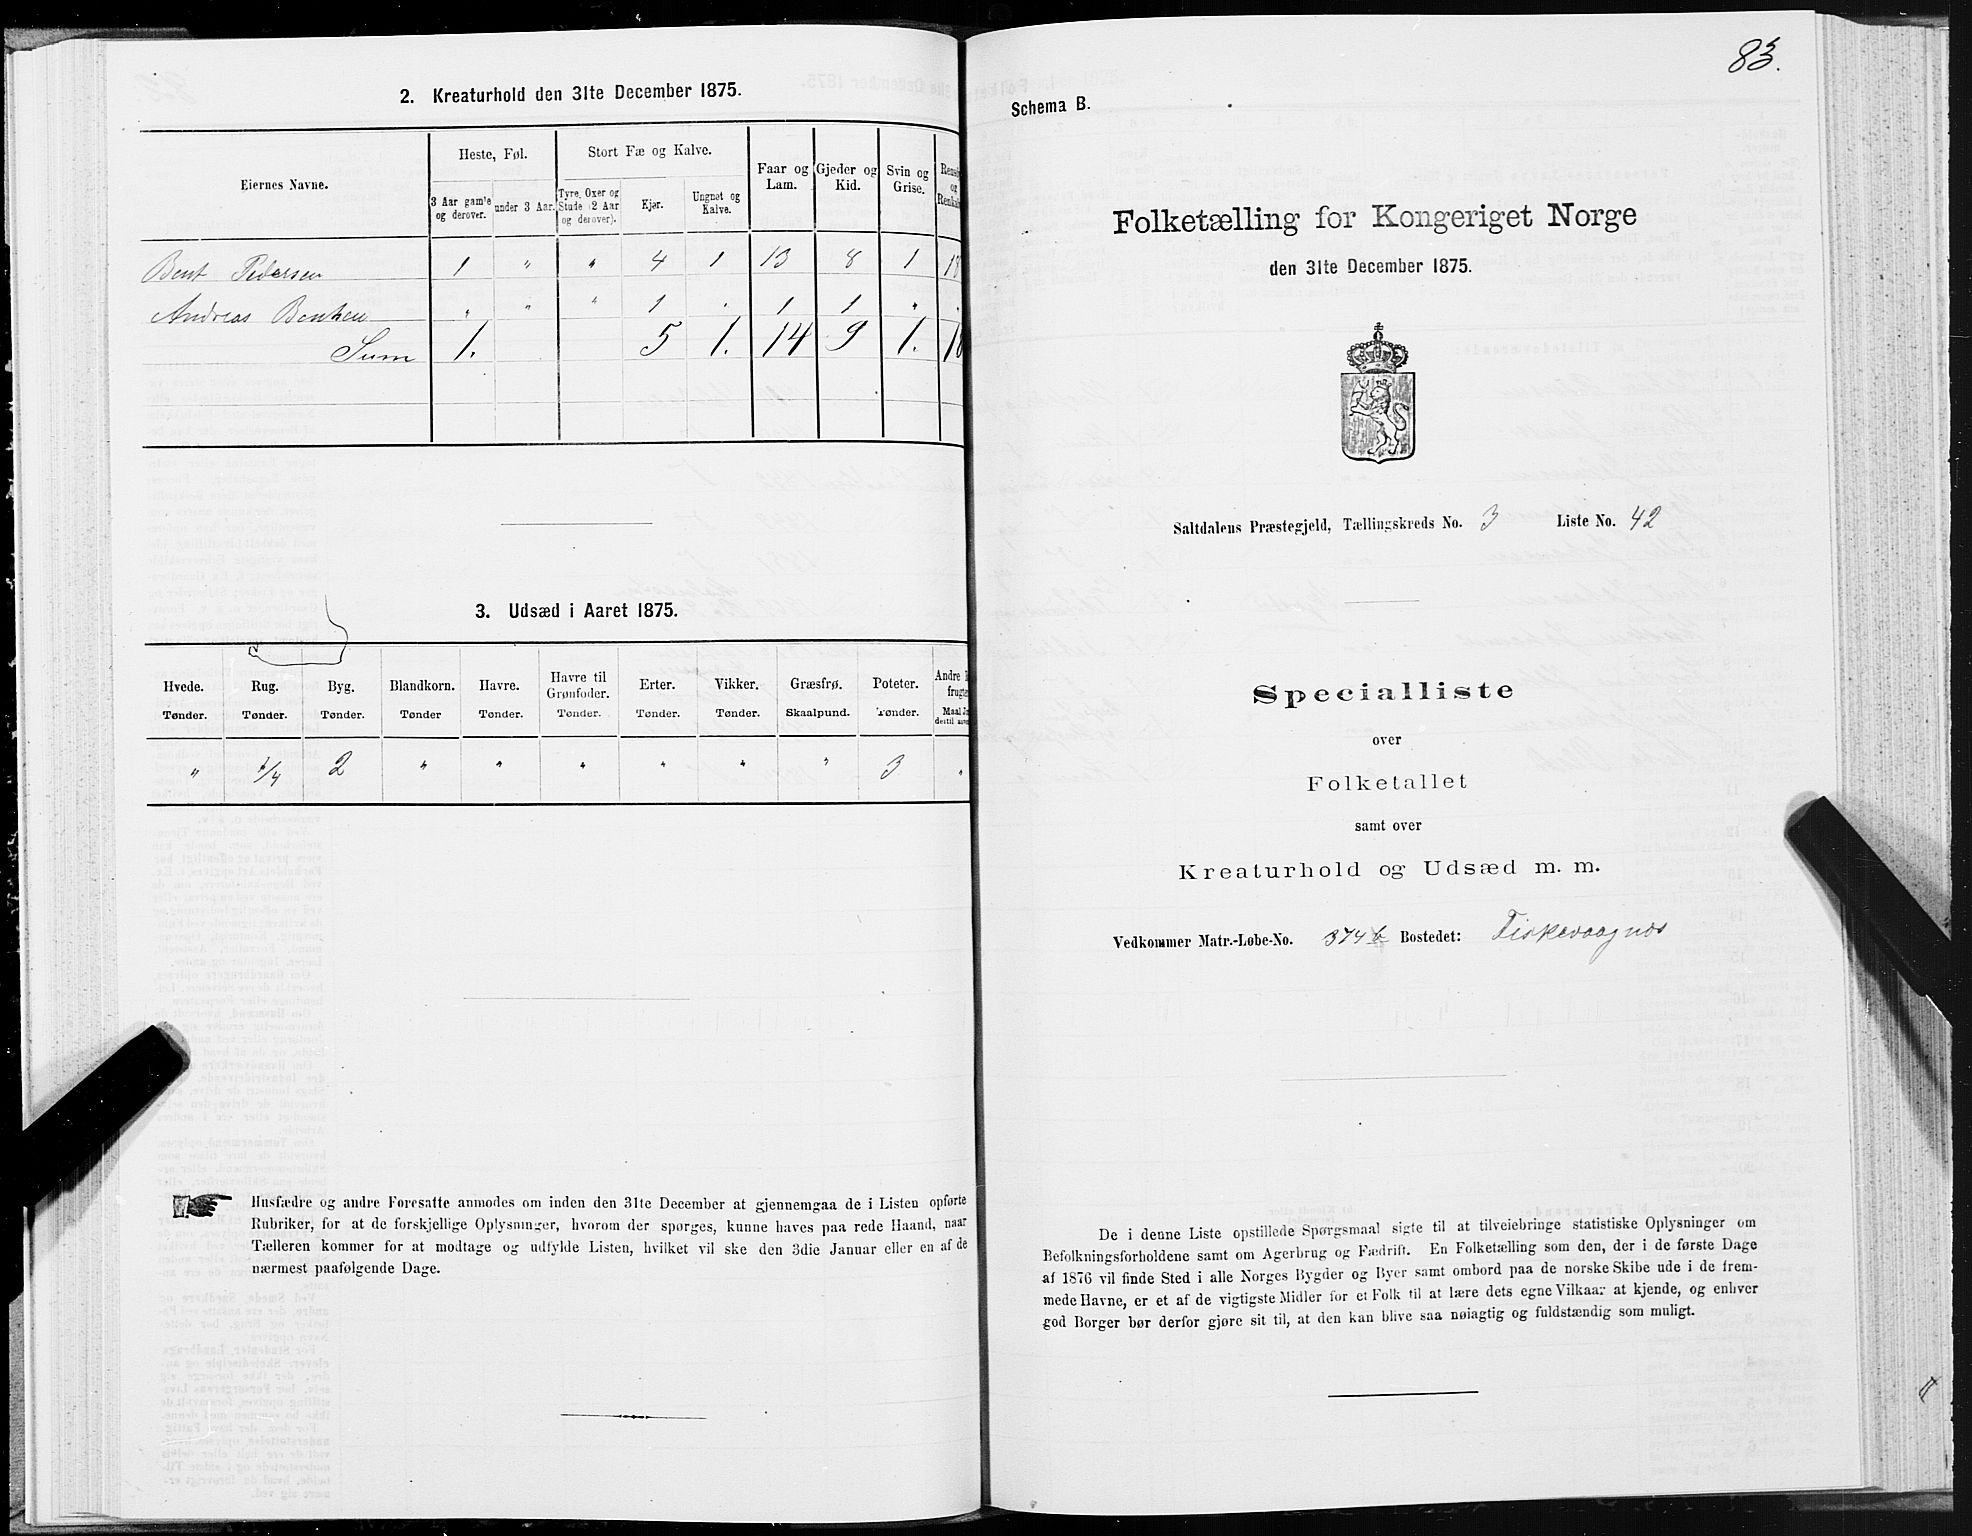 2. Kreaturhold den 31te December 1875.
Eiernes Navne.
Heste, Føl.
Stort Fæ og Kalve.
Faar og Lam.
Gjeder og Kid.
Svin og Grise.
3 Aar gam'e og derover.
under 3 Aar.
Tyre, Oxer og Stude (2 Aar og derover).
Kjør.
Ungnøt og Kalve.
Bent Pedersen 1 " " 4 1 13 8 1 18
Andreas Bentsen " " " 1 . 1 1 " .
Sum 1. 5 1. 14 9 1. 18
3. Udsæd i Aaret 1875.
Hvede. Rug. Byg. Blandkorn. Havre. Havre til Grønfoder. Erter. Vikker. Græsfrø. Poteter.
Tønder. Tønder. Tønder. Tønder Tønder. Tønder. Tønder. Tønder. Skaalpund. Tønder.
" 1/4 2 " " " " " " 3 "
Husfædre og andre Foresatte anmodes om inden den 31te December at gjennemgaa de i Listen opførte
Rubriker, for at de forskjellige Oplysninger, hvorom der spørges, kunne haves paa rede Haand, naar
Tælleren kommer for at modtage og udfylde Listen, hvilket vil ske den 3die Januar eller en af de
nærmest paafølgende Dage.
83.
Schema B.
Folketælling for Kongeriget Norge
den 31te December 1875.
Saltdalens Præstegjeld, Tællingskreds No. 3 Liste No. 42
Specialliste
over
Folketallet
samt over
Kreaturhold og Udsæd m. m.
Vedkommer Matr.-Løbe-No. 374b Bostedet: Fiskevaagnes
De i denne Liste opstillede Spørgsmaal sigte til at tilveiebringe statistiske Oplysninger om
Befolkningsforholdene samt om Agerbrug og Fædrift. En Folketælling som den, der i de første Dage
af 1876 vil finde Sted i alle Norges Bygder og Byer samt ombord paa de norske Skibe ude i de frem-
mede Havne, er et af de vigtigste Midler for et Folk til at lære dets egne Vilkaar at kjende, og enhver
god Borger bør derfor gjøre sit til, at den kan blive saa nøiagtig og fuldstændig som muligt.